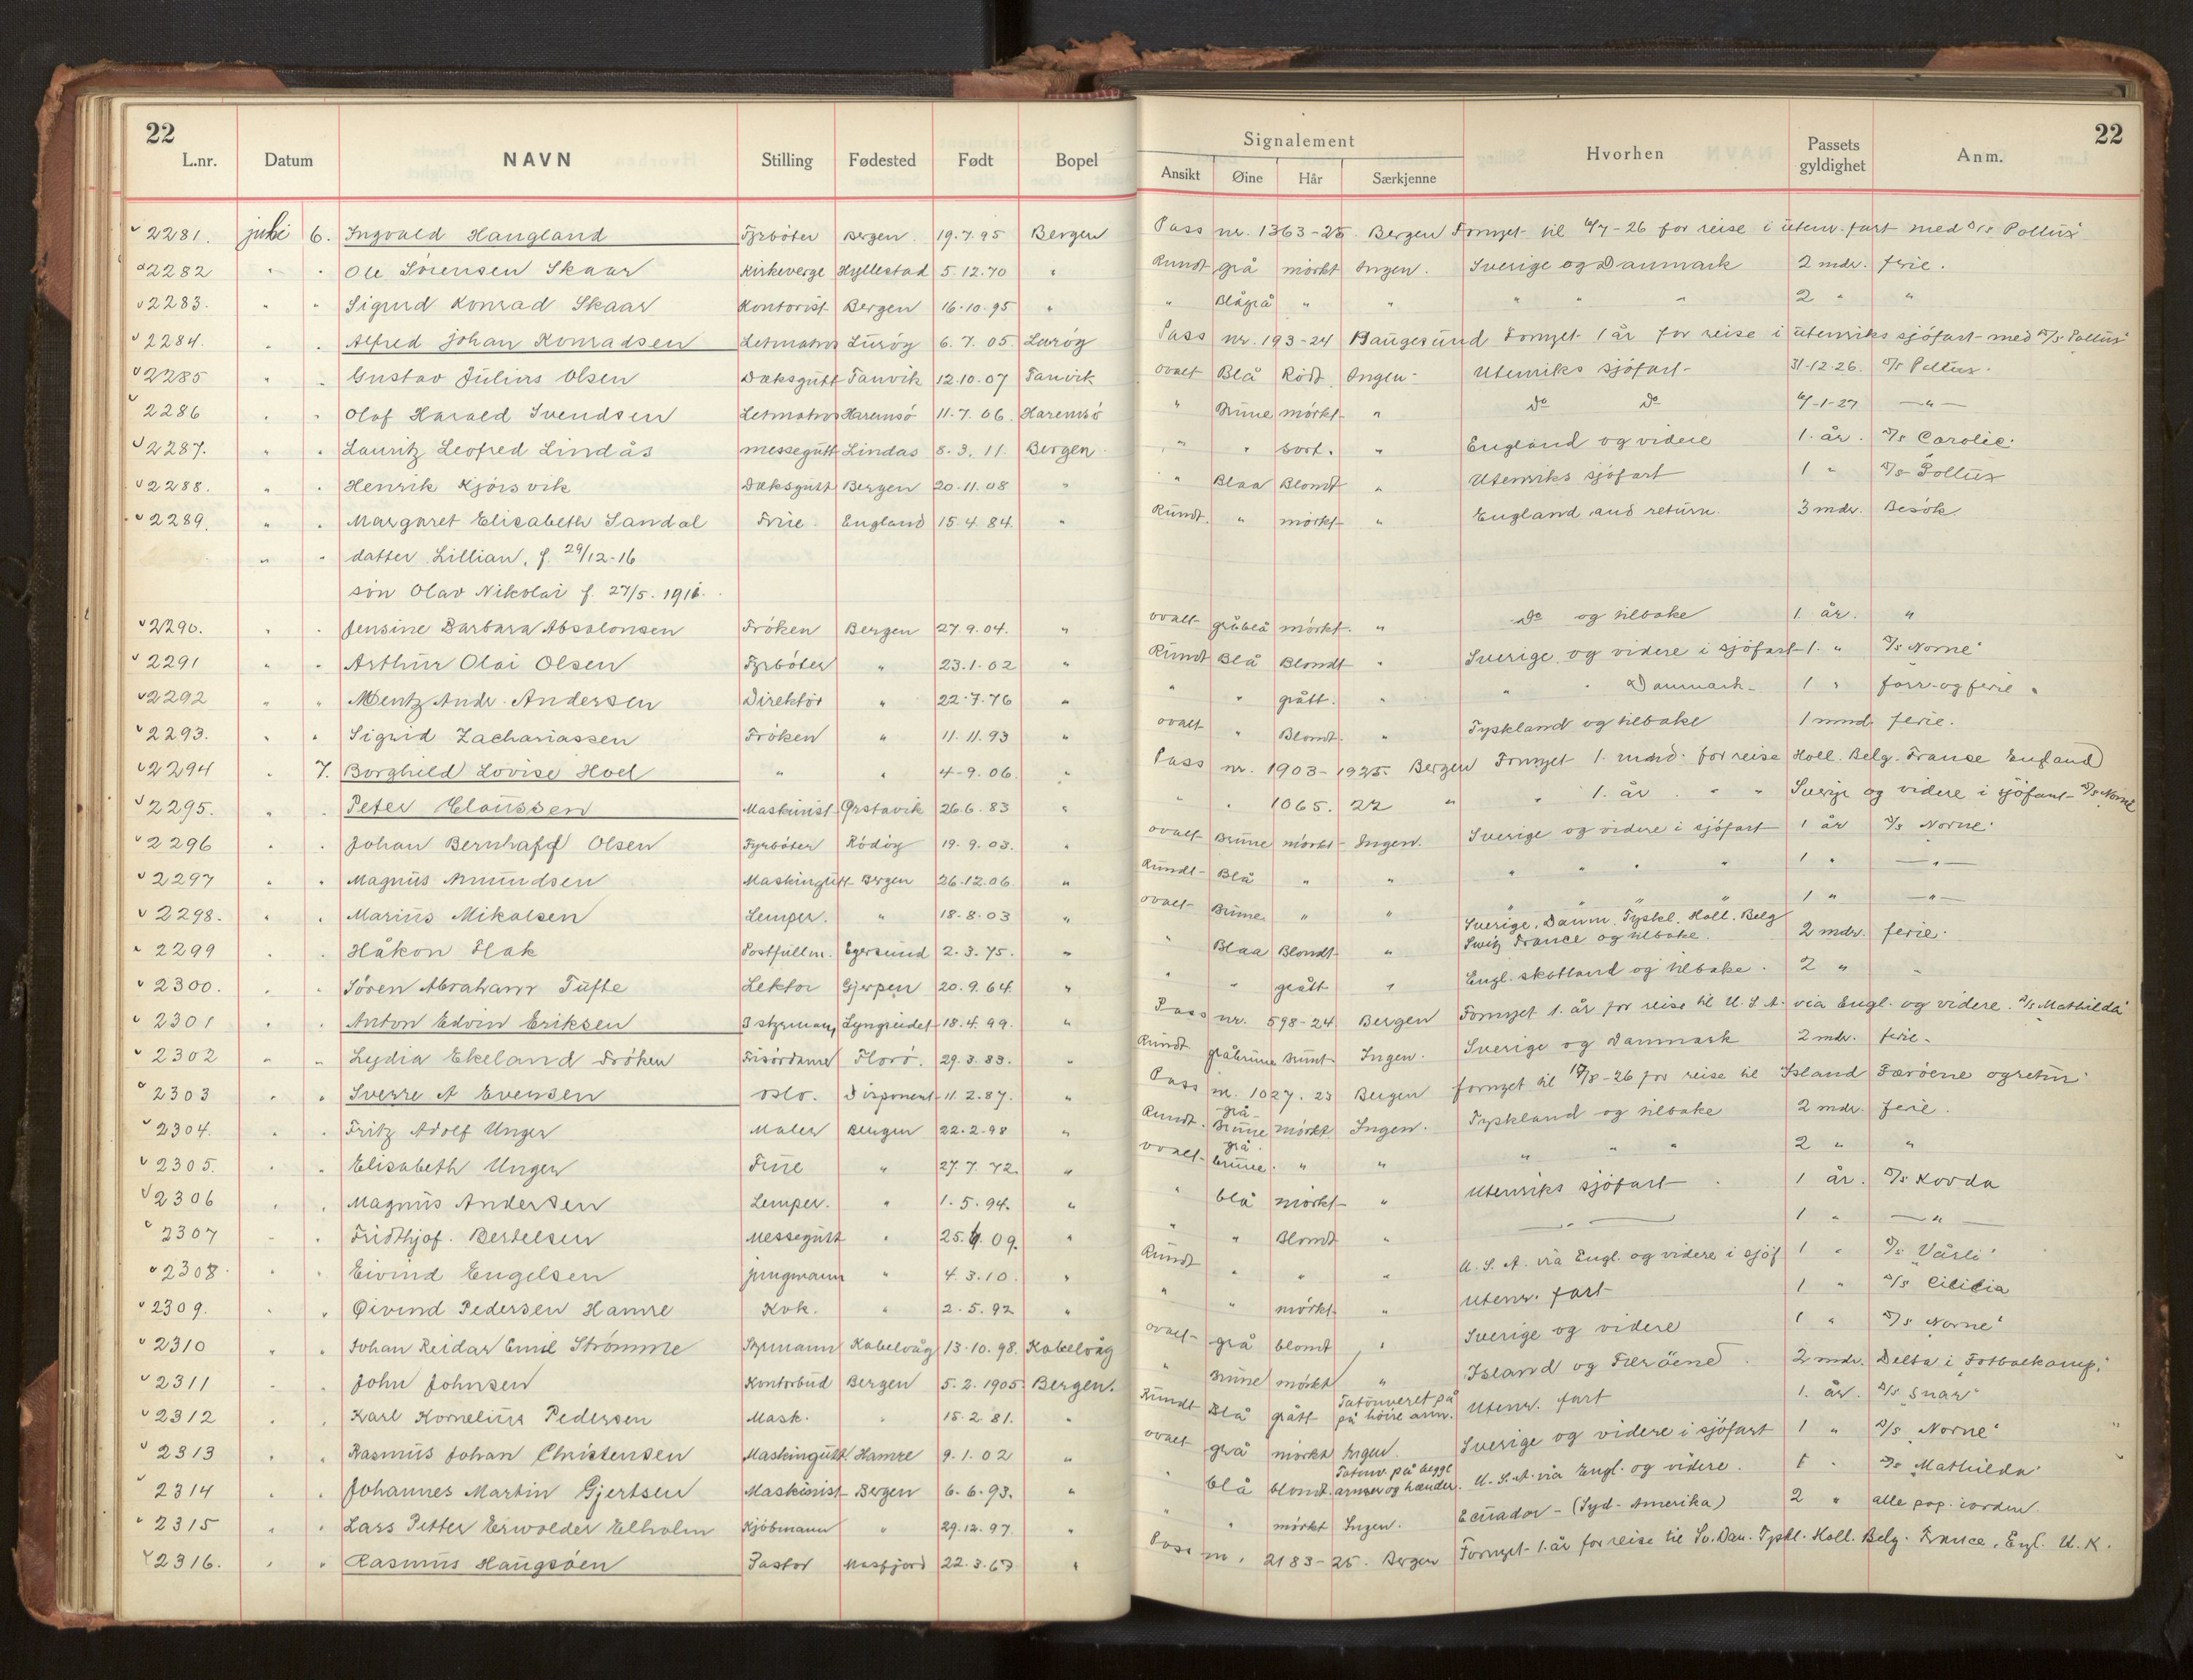 22
L.nr. Datum NAVN Stilling Fødested Født Bopel
Signalement
Ansikt Øine Hår Særkjenne
Hvorhen
Passets gyldighet
Anm.
22
2281. juli 6. Ingvald Haugland Fyrböter Bergen 19.7.95 Bergen Pass nr. 1363-25 Bergen Fornyet til 6/7-26 for reise i utenr. fart med D/S Pollux
2282 " " Ole Sörensen Skaar Kirkeverge Hyllestad 5.12.70 " Rundt grå mörkt Ingen. Sverige og Danmark 2 mdr. ferie.
2283. " " Sigurd Konrad Skaar Kontorist Bergen 16.10.95 " " Blågrå " " " " " 2 " "
2284. " " Alfred Johan Konradsen Letmatros Luröy 6.7.05. Luröy Pass nr. 193-24 Haugesund Fornyet 1 år for reise i utenriks sjöfart med D/S "Pollux"
2285 " " Gustav Julius Olsen Dæksgutt Tanvik 12.10.07 Tanvik ovalt Blå Rödt Ingen Utenriks sjöfart 31-12-26. D/S Pollux.
2286 " " Olaf Harald Svendsen Letmatros Haremsö 11.7.06. Haremsö " Brune mörkt " Do Do 6/-1-27 —"—
2287. " " Lauritz Leofred Lindås messegutt Lindas 8.3.11. Bergen " " sort. " England og videre 1. år. D/S Carolie.
2288. " " Henrik Kjörsvik Dæksgutt Bergen 20.11.08 " " Blaa Blondt " Utenriks sjöfart 1 " D/S Pollux
2289. " " Margaret Elisabeth Sandal Frue. England 15.4.84. " Rundt. " mörkt " England and return. 3 mdr. Besök
" " datter Lillian, f. 29/12-16
sön Olav Nikolai f. 27/5. 1916.
2290. " " Jensine Barbara Absalonsen Fröken Bergen 27.9.04. " ovalt gråblå mörkt. " Do og tilbake 1. år. "
2291 " " Arthur Olai Olsen Fyrböter " 23.1.02 " Rundt Blå Blondt " Sverige og videre i sjöfart 1. " D/S Norne"
2292 " " Mentz Andr. Andersen Direktör " 22.7.76 " " " grått. " " " Danmark 1 " forr. og ferie "
2293. " " Sigrid Zachariassen Fröken " 11.11.93 " ovalt " Blondt. " Tyskland og tilbake 1 mnd ferie.
2294 " 7. Borghild Lovise Hoel " " 4-9.06. " Pass nr. 1903-1925. Bergen Fornyet 1. mnd. for reise Holl. Belg. France England
2295. " " Peter Claussen Maskinist Örstavik 26.6.83 " " " 1065. 22 " " 1. år " " Sverige og videre i sjöfart D/S Norne
2296 " " Johan Bernhaff Olsen Fyrböter Rödöy 19.9.03. " ovalt Brune mörkt Ingen. Sverige og videre i sjöfart 1 år D/S Norne"
2297 " " Magnus Amundsen Maskingutt Bergen 26.12.06. " Rundt Blå " " " " " 1 " —"—
2298. " " Marius Mikalsen Lemper. " 18.8.03 " ovalt Brune. " " " 1 " —"—
2299 " " Håkon Flak Postfullm. Egersund 2.3.75. " " Blaa Blondt " Sverige, Danm. Tyskl. Holl. Belg Switz France og tilbake. 2 mdr. ferie.
2300. " " Sören Abraham Tufte Lektor Gjerpen 20.9.64. " " " grått " Engl. skotland og tilbake. 2 " "
2301 " " Anton Edvin Eriksen 3 styrmann Lyngseidet 18.4.99. " Pass nr. 598-24 Bergen Fornyet 1. år for reise til U.S.A. via Engl. og videre. D/S "Mathilda"
2302 " " Lydia Ekeland Fröken Frisördame Florö. 29.3.83. " Rundt gråbrune Brunt Ingen. Sverige og Danmark 2 mdr. ferie.
2303 " " Sverre A Evensen Oslo. Disponent 11.2.87. " Pass nr. 1027. 23 Bergen fornyet til 17/8-26 for reise til Island Færöene og retur
2304. " " Fritz Adolf Unger Maler Bergen 22.2.98 " Rundt. grå Brune mörkt Ingen. Tyskland og tilbake 2 mdr. ferie.
2305. " " Elisabeth Unger Frue " 27.7.72. " ovalt grå brune. " " " " " 2 " "
2306 " " Magnus Andersen Lemper. " 1.5.94. " " blå mörkt " Utenriks sjöfart 1 år. D/S Korda
2307 " " Fridthjof. Bertelsen Messegutt " 25.9.09. " " " Blondt " —"— 1 " —"—
2308 " " Eivind Engelsen jungmann " 4.3.10. " Rundt " " " U.S.A. via Engl. og videre i sjöf 1 " D/S "Vårli"
2309. " " Øivind Pedersen Hamre Kok. " 2.5.92 " " " mörkt " Utenr. fart 1 " D/S Cilicia
2310 " " Johan Reidar Emil Strömme Styrmann Kabelvåg 13.10.98. Kabelvåg ovalt grå blondt " Sverige og videre 1 " D/S Norne"
2311 " " John Johnsen Kontorbud Bergen 5.2.1905 Bergen. " Brune mörkt " Island og Færöene. 2 mdr. Delta i Fotbalkamp.
2312 " " Karl Kornelius Pedersen Mask. " 15.2.81. " Rundt Blå grått Tatouveret på på höire arm. Utenr. fart 1. år. D/S Snar"
2313 " " Rasmus Johan Christensen Maskingutt Hamre 9.1.02 " ovalt grå mörkt Ingen. Sverige og videre i sjöfart 1 " D/S "Norne"
2314 " " Johannes Martin Gjertsen Maskinist Bergen 6.6.93. " " blå blondt Tatouv. på begge armer og hænder. U.S.A. via Engl. og videre. 1 " D/S "Mathilda"
2315 " " Lars Petter Erwolder Elholm Kjöbmann " 29.12.97. " " " mörkt Ingen. Ecuador - (Syd-Amerika) 2 " alle pap. iorden.
2316. " " Rasmus Haugsöen Pastor Masfjord 22.3.67 " Pass nr. 2183-25. Bergen Fornyet 1. år for reise til Sv. Dan. Tyskl. Holl. Belg. France, Engl. U.K.